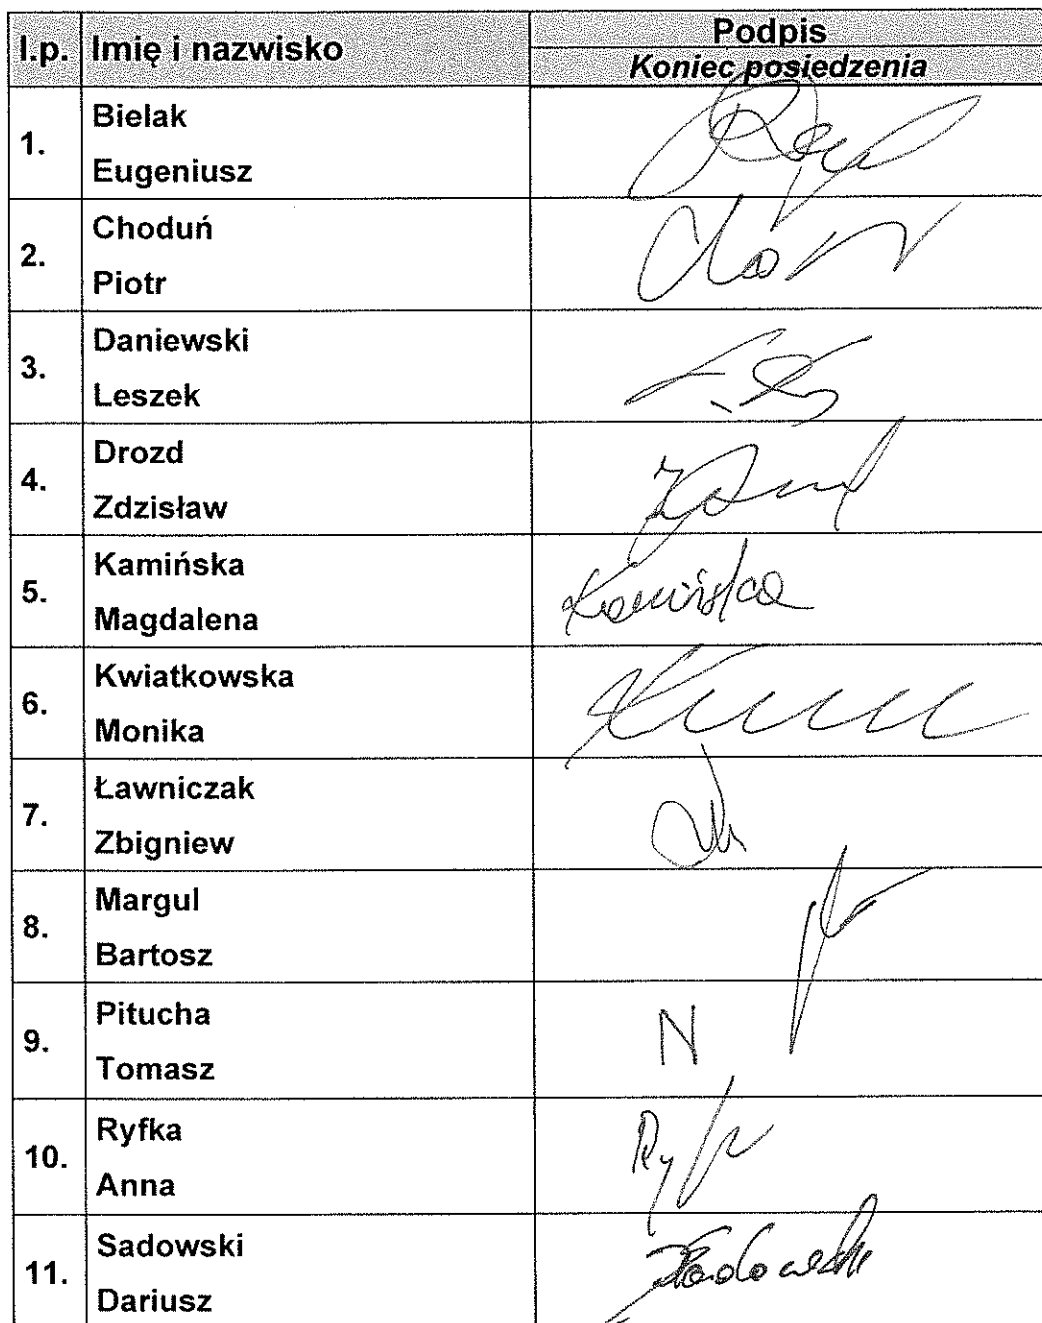 l.p. Imię i nazwisko Podpis
Koniec posiedzenia
1. Bielak
Eugeniusz
2. Choduń
Piotr
3. Daniewski
Leszek
4. Drozd
Zdzisław
5. Kamińska
Magdalena
Kamińska
6. Kwiatkowska
Monika
7. Ławniczak
Zbigniew
8. Margul
Bartosz
9. Pitucha
Tomasz
N
10. Ryfka
Anna
11. Sadowski
Dariusz